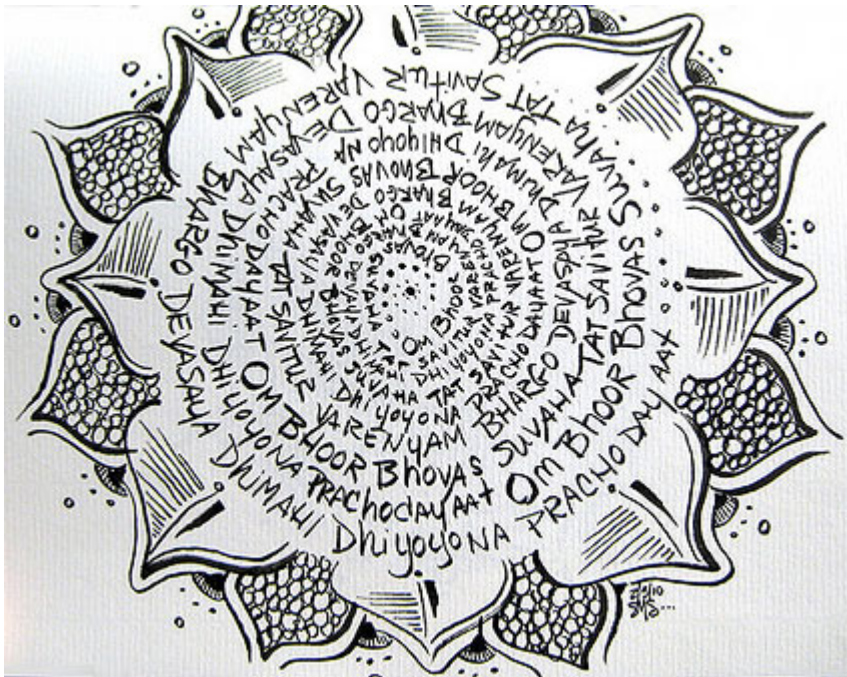 OM BHOOR BHOVAS SUVAHA TAT SAVITUR VARENYAM BHARGO DEVAYA DHIMAHI DHIYOYONA PRACHODAYAAT
OM BHOOR BHOVAS SUVAHA TAT SAVITUR VARENYAM BHARGO DEVASAYA DHIMAHI DHIYOYONA PRACHODAYAAT
OM BHOOR BHOVAS SUVAHA TAT SAVITUR VARENYAM BHARGO DEVASAYA DHIMAHI DHIYOYONA PRACHODAYAAT
OM BHOOR BhOVAS SUVAHA TAT SAVITUR VARENYAM BHARGO DEVASAYA DHIMAHI DHIYOYONA PRACHOdAYAAT
OM BHOOR BhOVAS SUVAHA TAT SAVITUR VARENYAM BHARGO DEVASAYA DHiMAHI DhiyoyoNA PRACHODAYAAT